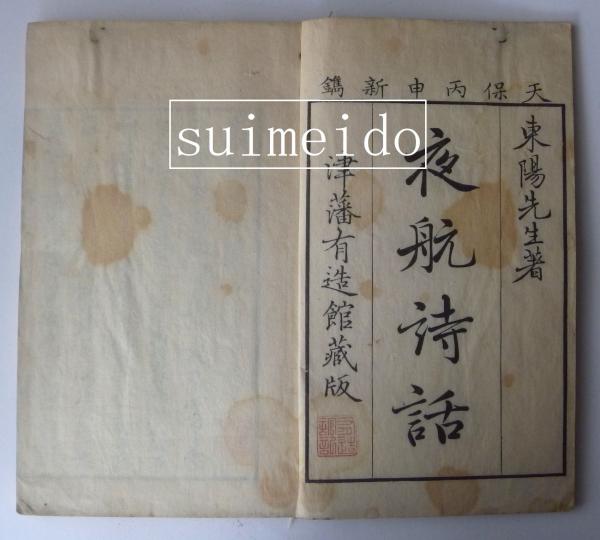 天保丙申新鐫
東陽先生著
夜航詩話
津藩有造館藏版
suimeido